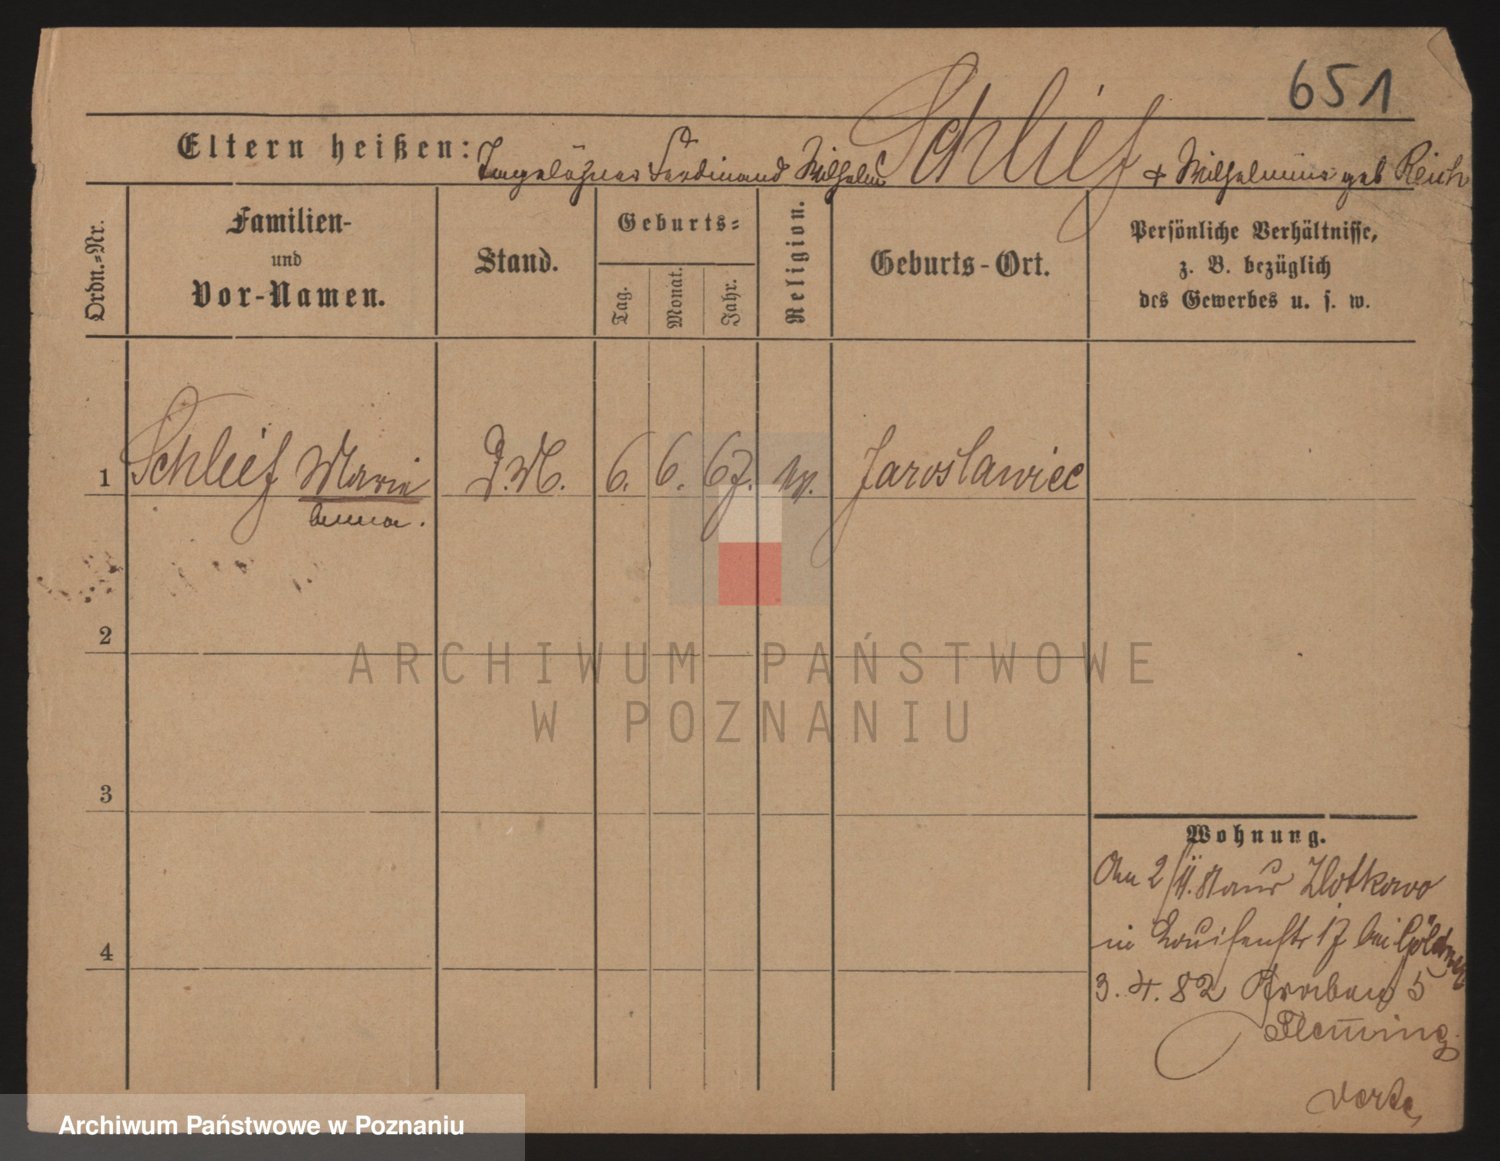 651
Eltern heißen: Tagelöhner Ferdinand Wilhelm Schlief + Wilhelmine geb Reich
Ordn.-Nr.
Familien-
und
Vor-Namen.
Stand.
Geburts-
Tag.
Monat.
Jahr.
Religion.
Geburts-Ort.
Persönliche Verhältnisse,
z. B. bezüglich
des Gewerbes u. s. w.
1 Schlief Marie D. M. 6. 6. 67. Jaroslawiec
Anna.
2
3
4
Wohnung.
Am 2/4. aus Zlotkowo
in Louisenstr 17 bei
3. 4. 82 Graben 5
Fleming
ARCHIWUM PAŃSTWOWE
W POZNANIU
Archiwum Państwowe w Poznaniu